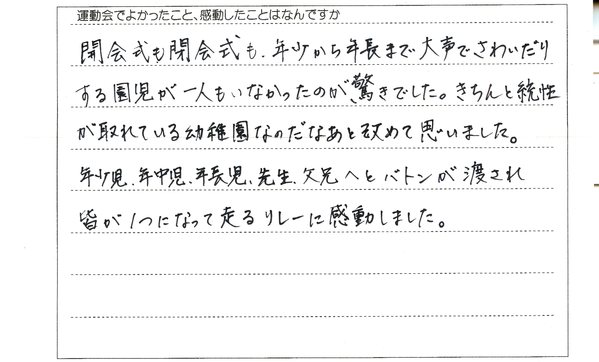 運動会でよかったこと、感動したことはなんですか
開会式も閉会式も、年少から年長まで大声でさわいだり
する園児が一人もいなかったのが、驚きでした。きちんと統性
が取れている幼稚園なのだなあと改めて思いました。
年少児、年中児、年長児、先生、父兄へとバトンが渡され
皆が1つになって走るリレーに感動しました。